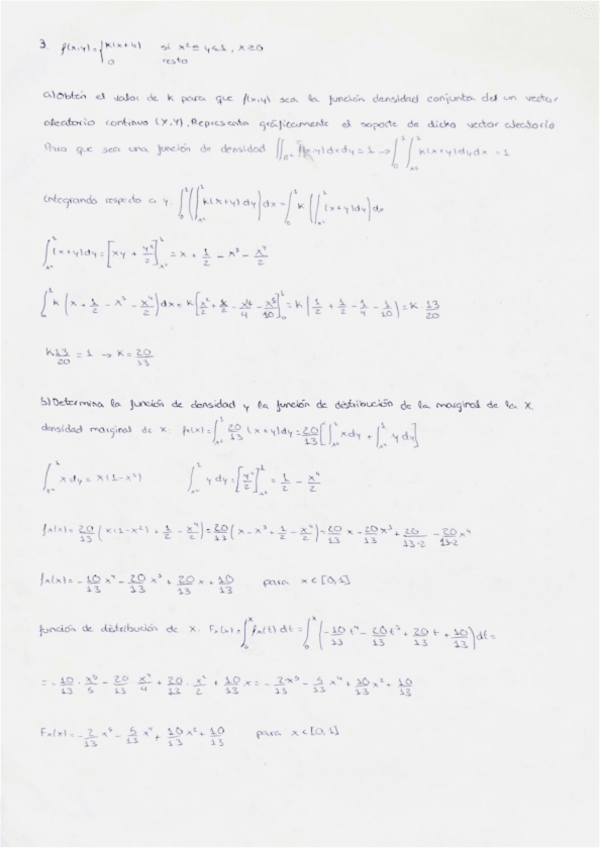 3. f(x,y) = { k(x+y) si x² ≤ y ≤ 1, x ≥ 0
0 resto
a) Obtén el valor de k para que f(x,y) sea la función densidad conjunta del un vector
aleatorio continuo (X,Y). Representa gráficamente el soporte de dicho vector aleatorio
Para que sea una función de densidad ∬_R² f(x,y)dxdy = 1 → ∫₀¹ ∫_x²¹ k(x+y)dydx = 1
Integrando respecto a y: ∫₀¹ (∫_x²¹ k(x+y)dy) dx = ∫₀¹ k (∫_x²¹ (x+y)dy) dx
∫_x²¹ (x+y)dy = [xy + y²/2]_x²¹ = x + 1/2 - x³ - x⁴/2
∫₀¹ k (x + 1/2 - x³ - x⁴/2) dx = k [x²/2 + x/2 - x⁴/4 - x⁵/10]₀¹ = k (1/2 + 1/2 - 1/4 - 1/10) = k · 13/20
k 13/20 = 1 → k = 20/13
b) Determina la función de densidad y la función de distribución de la marginal de la X.
densidad marginal de X: fx(x) = ∫_x²¹ 20/13 (x+y)dy = 20/13 [∫_x²¹ xdy + ∫_x²¹ ydy]
∫_x²¹ xdy = x(1-x²) ∫_x²¹ ydy = [y²/2]_x²¹ = 1/2 - x⁴/2
fx(x) = 20/13 (x(1-x²) + 1/2 - x⁴/2) = 20/13 (x - x³ + 1/2 - x⁴/2) = 20/13 x - 20/13 x³ + 20/13·2 - 20/13·2 x⁴
fx(x) = - 10/13 x⁴ - 20/13 x³ + 20/13 x + 10/13 para x ∈ [0,1]
función de distribución de X: Fx(x) = ∫₀ˣ fx(t) dt = ∫₀ˣ (- 10/13 t⁴ - 20/13 t³ + 20/13 t + 10/13) dt =
= - 10/13 · x⁵/5 - 20/13 x⁴/4 + 20/13 · x²/2 + 10/13 x = - 2/13 x⁵ - 5/13 x⁴ + 10/13 x² + 10/13
Fx(x) = - 2/13 x⁵ - 5/13 x⁴ + 10/13 x² + 10/13 para x ∈ [0,1]